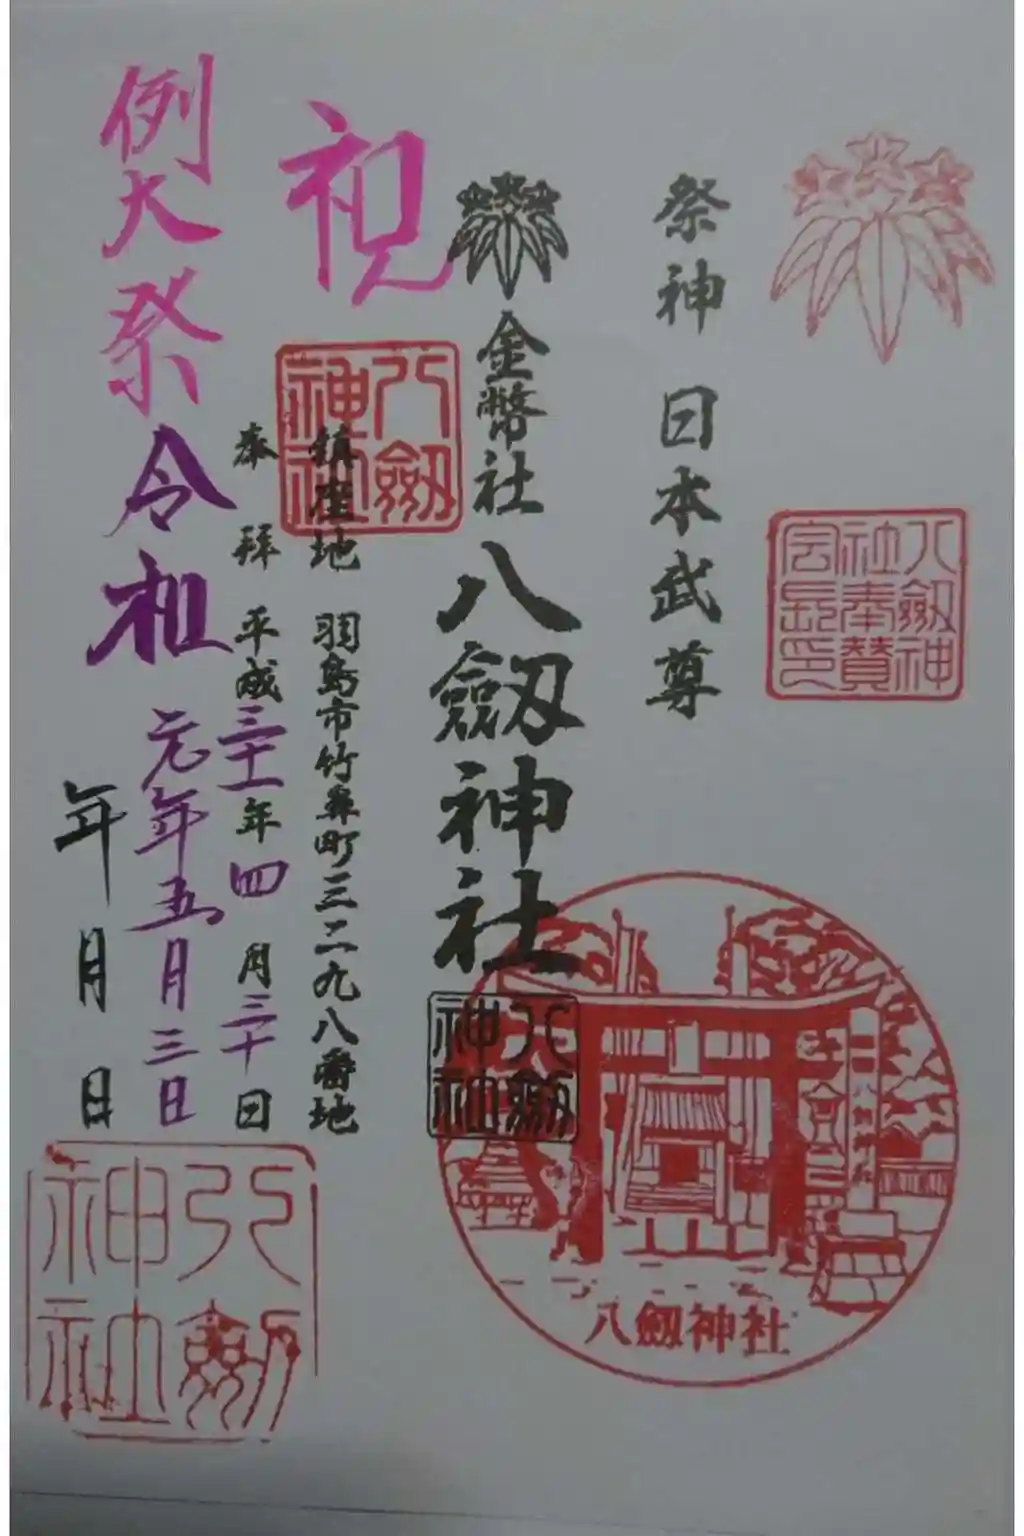 祭神 日本武尊
八劔神社奉賛会長印
金幣社 八劔神社
八劔神社
八劔神社
祝
八劔神社
鎮座地 羽島市竹鼻町三二九八番地
奉拝 平成三十一年四月三十日
例大祭 令和元年五月三日
年月日
八劔神社
八劔神社